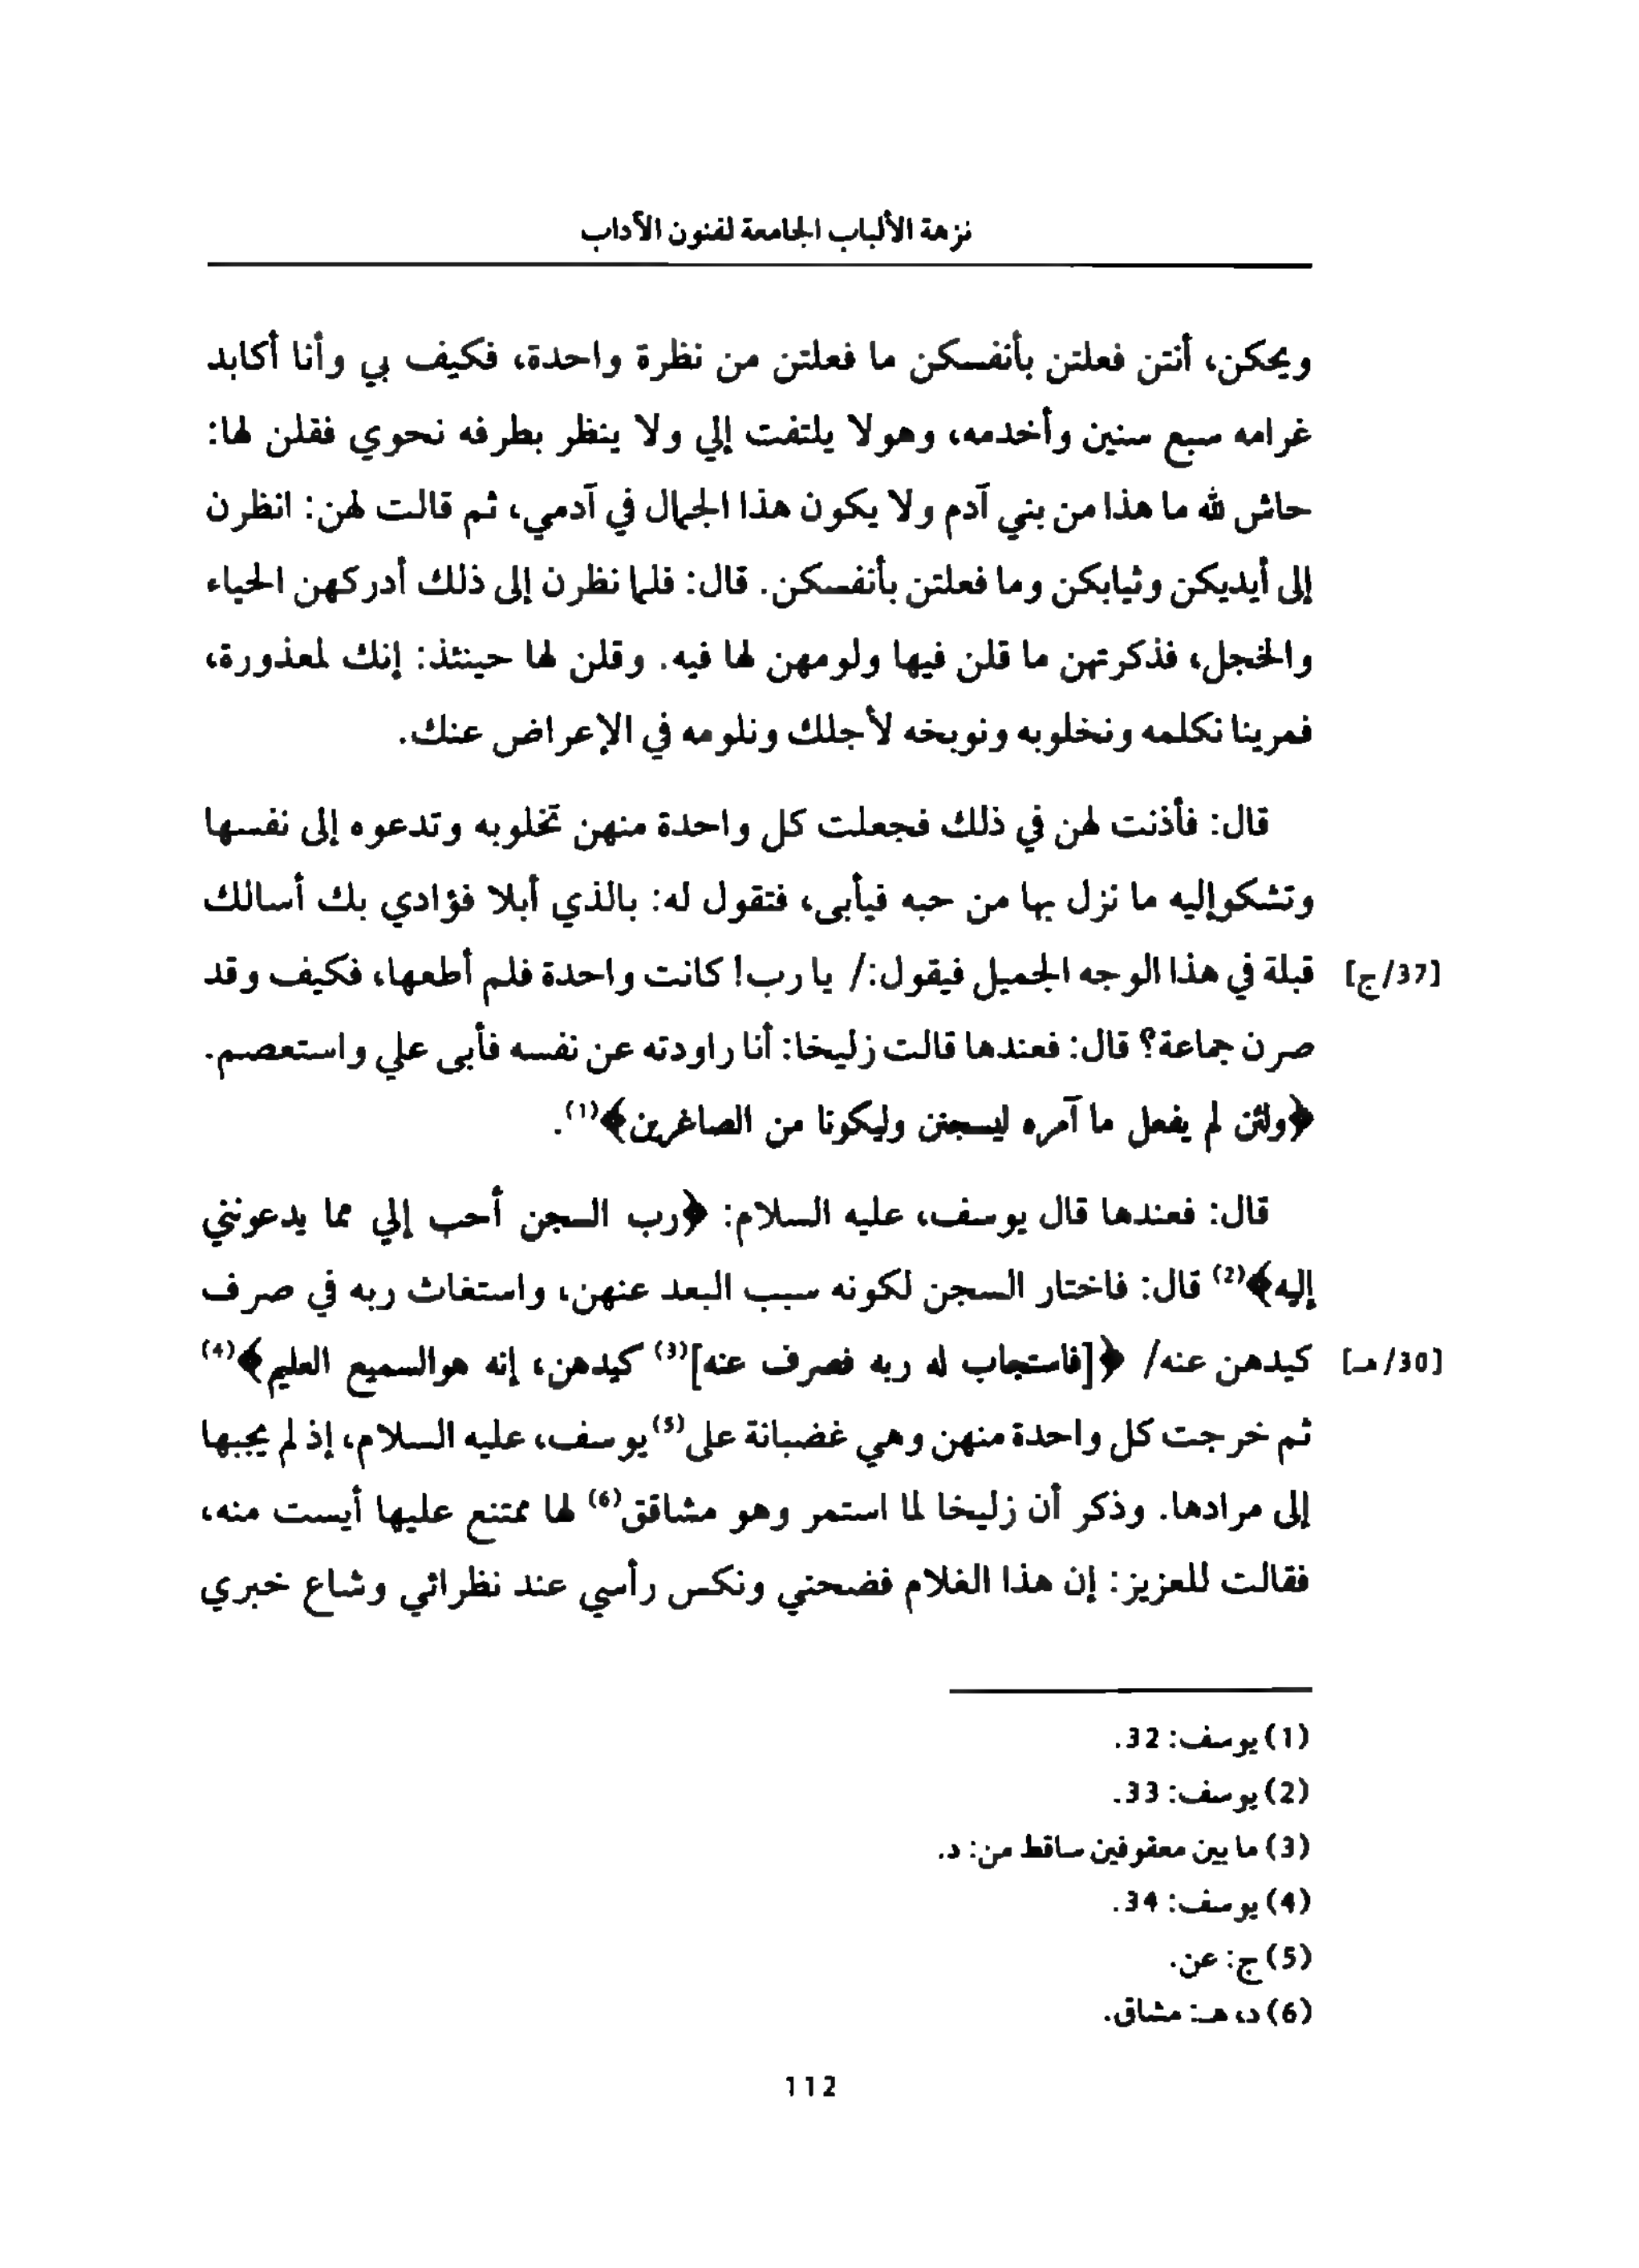 نزهة الألباب الجامعة لفنون الآداب
ويحكن، أنتن فعلتن بأنفسكن ما فعلتن من نظرة واحدة، فكيف بي وأنا أكابد
غرامه سبع سنين وأخدمه، وهولا يلتفت إلي ولا ينظر بطرفه نحوي فقلن لها:
حاش لله ما هذا من بني آدم ولا يكون هذا الجمال في آدمي، ثم قالت لهن: انظرن
إلى أيديكن وثيابكن وما فعلتن بأنفسكن. قال: فلما نظرن إلى ذلك أدركهن الحياء
والخجل، فذكرتهن ما قلن فيها ولومهن لها فيه. وقلن لها حينئذ: إنك لمعذورة،
فمرينا نكلمه ونخلوبه ونوبخه لأجلك ونلومه في الإعراض عنك.
قال: فأذنت لهن في ذلك فجعلت كل واحدة منهن تخلوبه وتدعوه إلى نفسها
وتشكوإليه ما نزل بها من حبه فيأبى، فتقول له: بالذي أبلا فؤادي بك أسالك
[37/ج] قبلة في هذا الوجه الجميل فيقول:/ يا رب! كانت واحدة فلم أطعها، فكيف وقد
صرن جماعة؟ قال: فعندها قالت زليخا: أنا راودته عن نفسه فأبى علي واستعصم.
﴿ولئن لم يفعل ما آمره ليسجنن وليكونا من الصاغرين﴾(1).
قال: فعندها قال يوسف، عليه السلام: ﴿رب السجن أحب إلي مما يدعونني
إليه﴾(2) قال: فاختار السجن لكونه سبب البعد عنهن، واستغاث ربه في صرف
[30/هـ] كيدهن عنه/ ﴿[فاستجاب له ربه فصرف عنه](3) كيدهن، إنه هوالسميع العليم﴾(4)
ثم خرجت كل واحدة منهن وهي غضبانة على(5) يوسف، عليه السلام، إذ لم يجبها
إلى مرادها. وذكر أن زليخا لما استمر وهو مشاقق(6) لها ممتنع عليها أيست منه،
فقالت للعزيز: إن هذا الغلام فضحني ونكس رأسي عند نظرائي وشاع خبري
(1) يوسف: 32.
(2) يوسف: 33.
(3) ما بين معقوفين ساقط من: د.
(4) يوسف: 34.
(5) ج: عن.
(6) د، هـ: مشاق.
112